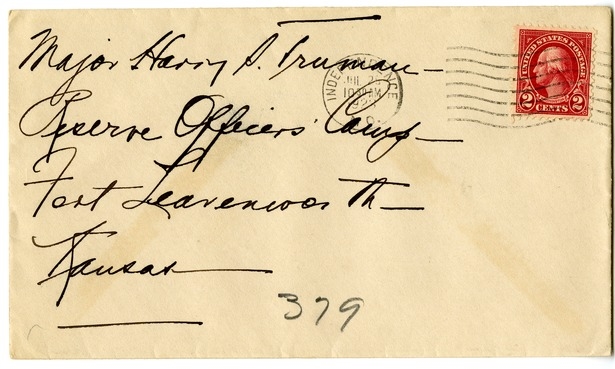 Major Harry S. Truman
INDEPENDENCE
10 30 AM
UNITED STATES POSTAGE
2 CENTS 2
Reserve Officers' Camp
Fort Leavenworth
Kansas
379